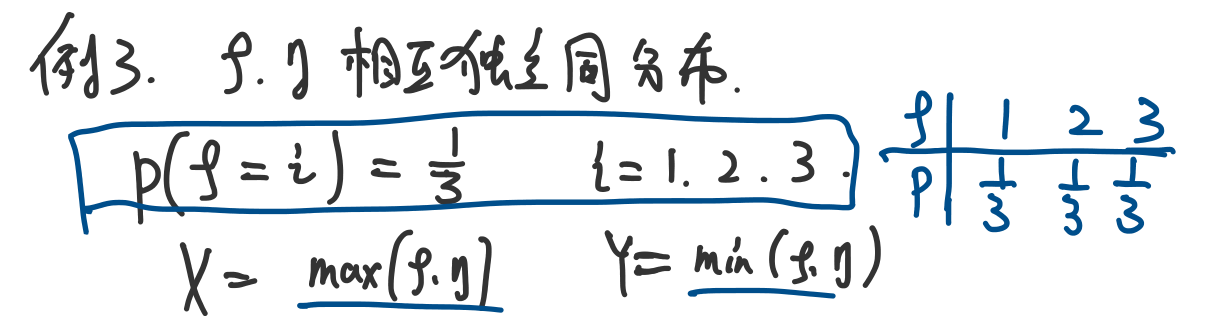 例3. ξ.η 相互独立同分布.
P(ξ=i)=1/3 i=1.2.3.
ξ 1 2 3
P 1/3 1/3 1/3
X= max(ξ.η) Y= min(ξ.η)